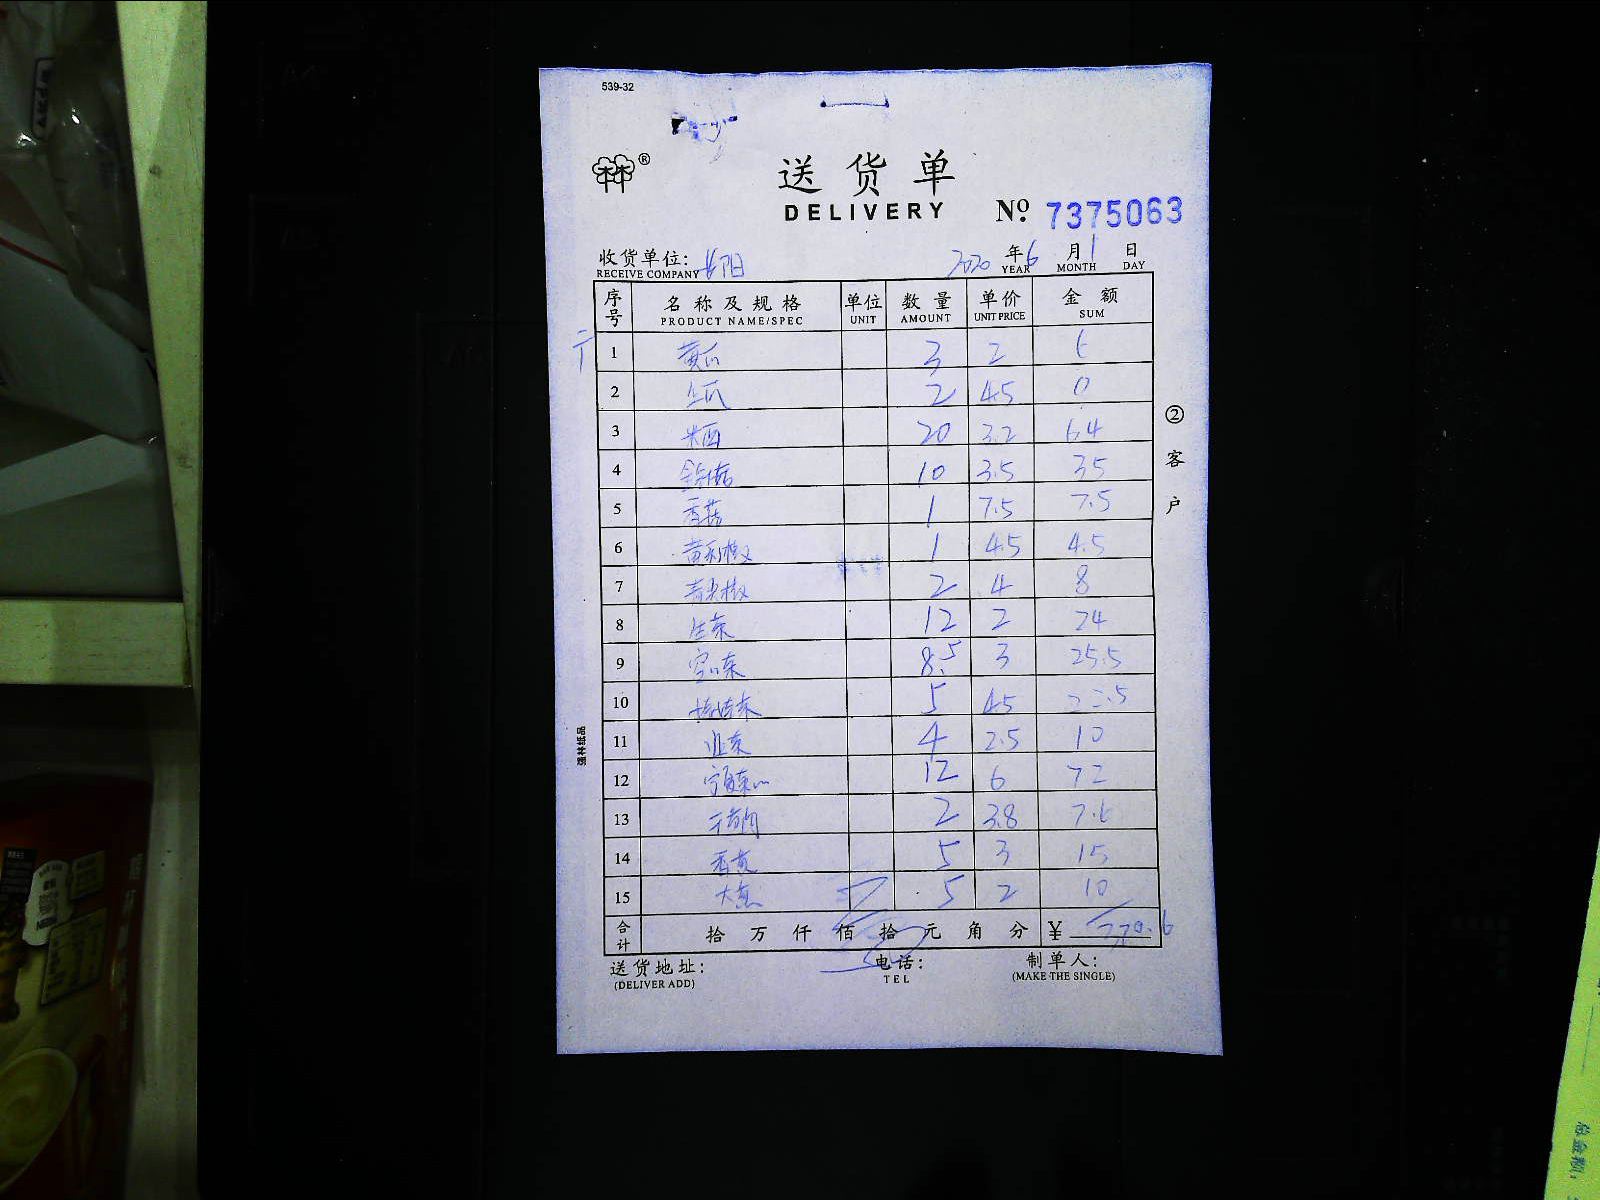 539-32
®
送货单
DELIVERY
No. 7375063
收货单位:
RECEIVE COMPANY
2020年6月1日
YEAR MONTH DAY
序号 名称及规格 单位 数量 单价 金额
PRODUCT NAME/SPEC UNIT AMOUNT UNIT PRICE SUM
1 黄瓜 3 2 6
2 2 4.5
3 20 3.2 64
4 10 3.5 35
5 香菇 1 7.5 7.5
6 1 4.5 4.5
7 青尖椒 2 4 8
8 生菜 12 2 24
9 空心菜 8.5 3 25.5
10 5 4.5 22.5
11 韭菜 4 2.5 10
12 12 6 72
13 2 3.8 7.6
14 5 3 15
15 大葱 5 2 10
合计 拾万仟佰拾元角分 ¥
送货地址: 电话: 制单人:
(DELIVER ADD) TEL (MAKE THE SINGLE)
②客户
强林纸品
总金额: